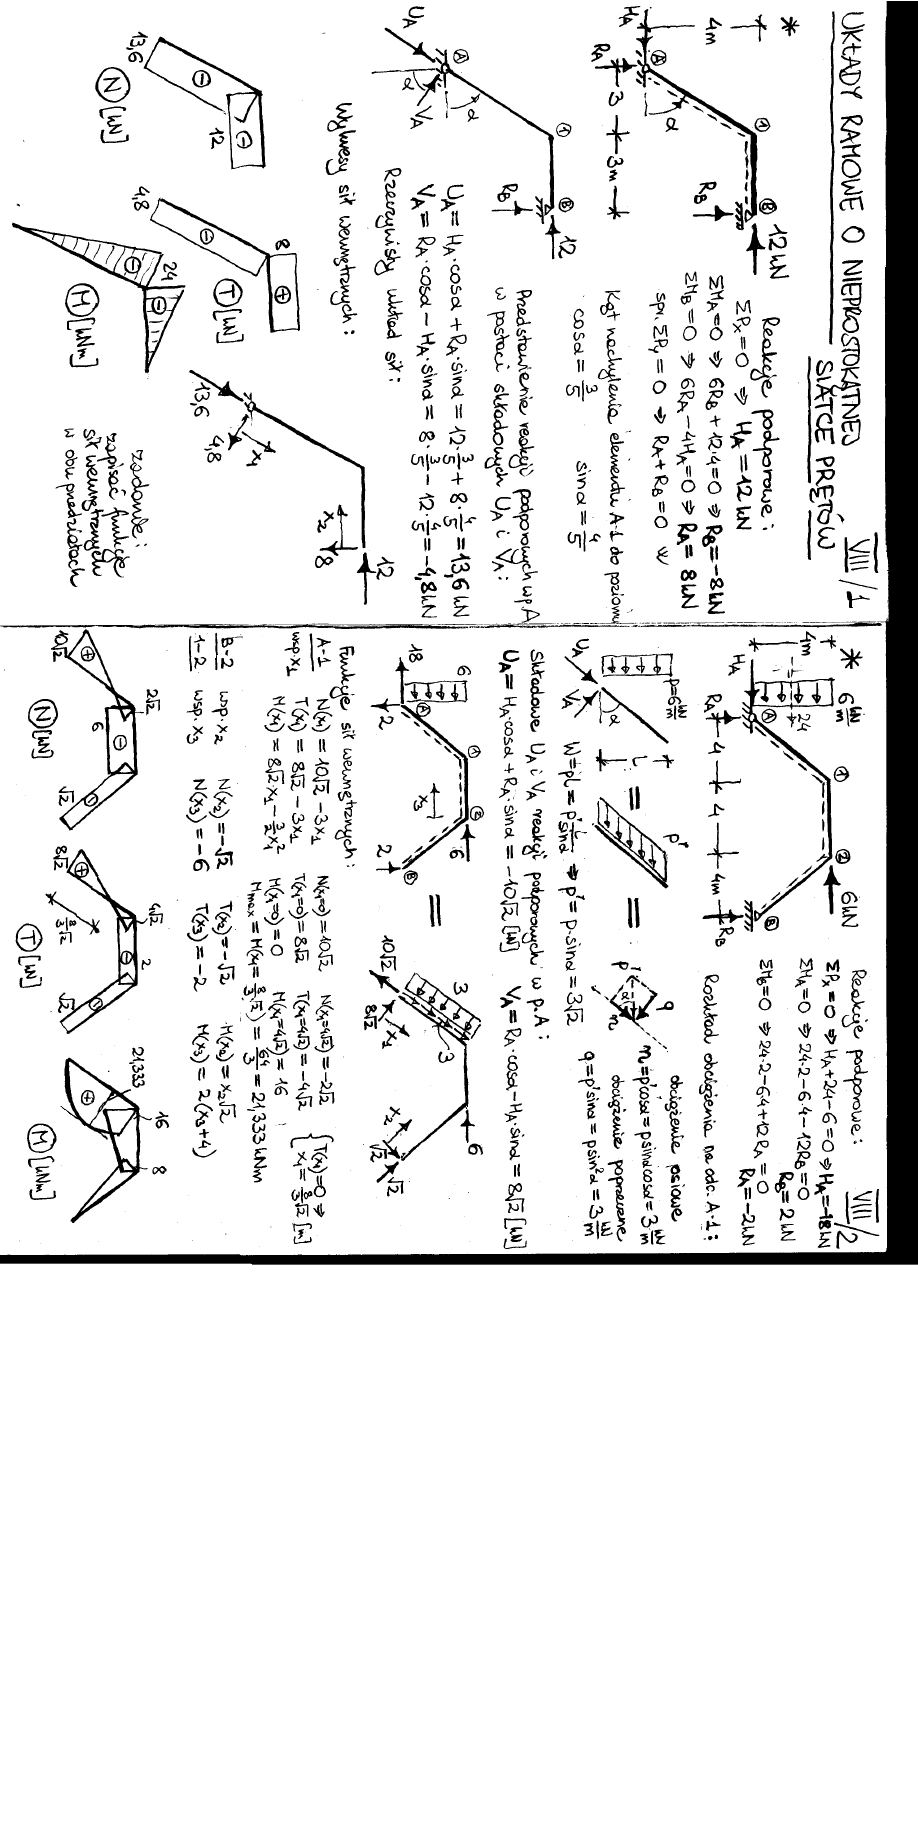 UKŁADY RAMOWE O NIEPROSTOKĄTNEJ
SIATCE PRĘTÓW
VIII/1
*
4m
HA
A
α
1
B
12kN
RA
RB
3
3m
Reakcje podporowe:
ΣPx=0 ⇒ HA=12kN
ΣMA=0 ⇒ 6RB+12·4=0 ⇒ RB=-8kN
ΣMB=0 ⇒ 6RA-4HA=0 ⇒ RA=8kN
spr. ΣPy=0 ⇒ RA+RB=0
Kąt nachylenia elementu A-1 do poziomu
cosα=3/5 sinα=4/5
UA
A
VA
α
α
1
B
12
RB
Przedstawienie reakcji podporowych w p.A
w postaci składowych UA i VA:
UA=HA·cosα+RA·sinα=12·3/5+8·4/5=13,6kN
VA=RA·cosα-HA·sinα=8·3/5-12·4/5=-4,8kN
Rzeczywisty układ sił:
13,6
4,8
x1
x2
8
12
Wykresy sił wewnętrznych:
13,6
12
N [kN]
4,8
8
T [kN]
24
M [kNm]
zadanie:
zapisać funkcje
sił wewnętrznych
w obu przedziałach
VIII/2
*
6 kN/m
4m
24
HA
A
1
2
6kN
B
RA
RB
4
4
4m
Reakcje podporowe:
ΣPx=0 ⇒ HA+24-6=0 ⇒ HA=-18kN
ΣMA=0 ⇒ 24·2-6·4-12RB=0
RB=2kN
ΣMB=0 ⇒ 24·2-6·4+12RA=0
RA=-2kN
Rozkład obciążenia na odc. A-1:
p=6 kN/m
UA
VA
α
L
=
p'
=
p'
q
n
α
W=pL=p' L/sinα ⇒ p'=p·sinα=3√2
obciążenie osiowe
n=p'cosα=psinαcosα=3 kN/m
obciążenie poprzeczne
q=p'sinα=psin²α=3 kN/m
Składowe UA i VA reakcji podporowych w p.A:
UA=HA·cosα+RA·sinα=-10√2 [kN] VA=RA·cosα-HA·sinα=8√2 [kN]
6
18
A
2
1
2
6
x3
2
B
=
3
3
10√2
8√2
x1
6
x2
√2
√2
Funkcje sił wewnętrznych:
A-1
wsp. x1
N(x1)=10√2-3x1 N(x1=0)=10√2 N(x1=4√2)=-2√2
T(x1)=8√2-3x1 T(x1=0)=8√2 T(x1=4√2)=-4√2
M(x1)=8√2x1-3/2x1² M(x1=0)=0 M(x1=4√2)=16
{T(x1)=0 ⇒
x1=8/3√2 [m]
Mmax=M(x1=8/3√2)=64/3=21,333kNm
B-2 wsp. x2 N(x2)=-√2 T(x2)=-√2 M(x2)=x2√2
1-2 wsp. x3 N(x3)=-6 T(x3)=-2 M(x3)=2(x3+4)
10√2
2√2
6
√2
N [kN]
8√2
4√2
2
√2
8/3√2
T [kN]
21,333
16
8
M [kNm]